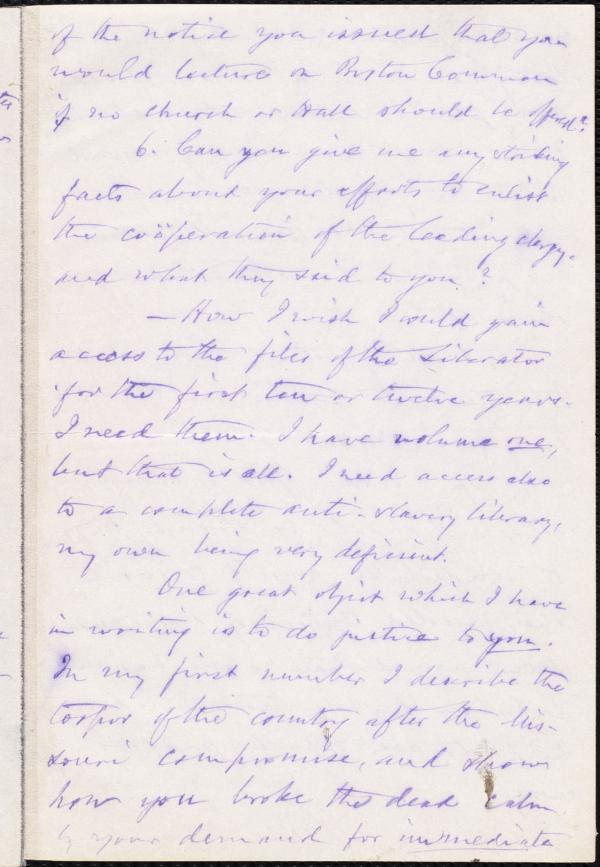 of the notice you issued that you
would lecture on Boston Common
if no church or Hall should be offered?
6. Can you give me any striking
facts about your efforts to enlist
the coöperation of the leading clergy.
and what they said to you?
— How I wish I could gain
access to the files of the Liberator
for the first ten or twelve years.
I need them. I have volume one,
but that is all. I need access also
to a complete anti-slavery library,
my own being very deficient.
One great object which I have
in writing is to do justice to you.
In my first number I describe the
torpor of the country after the Mis-
souri compromise, and show
how you broke the dead calm
by your demand for immediate